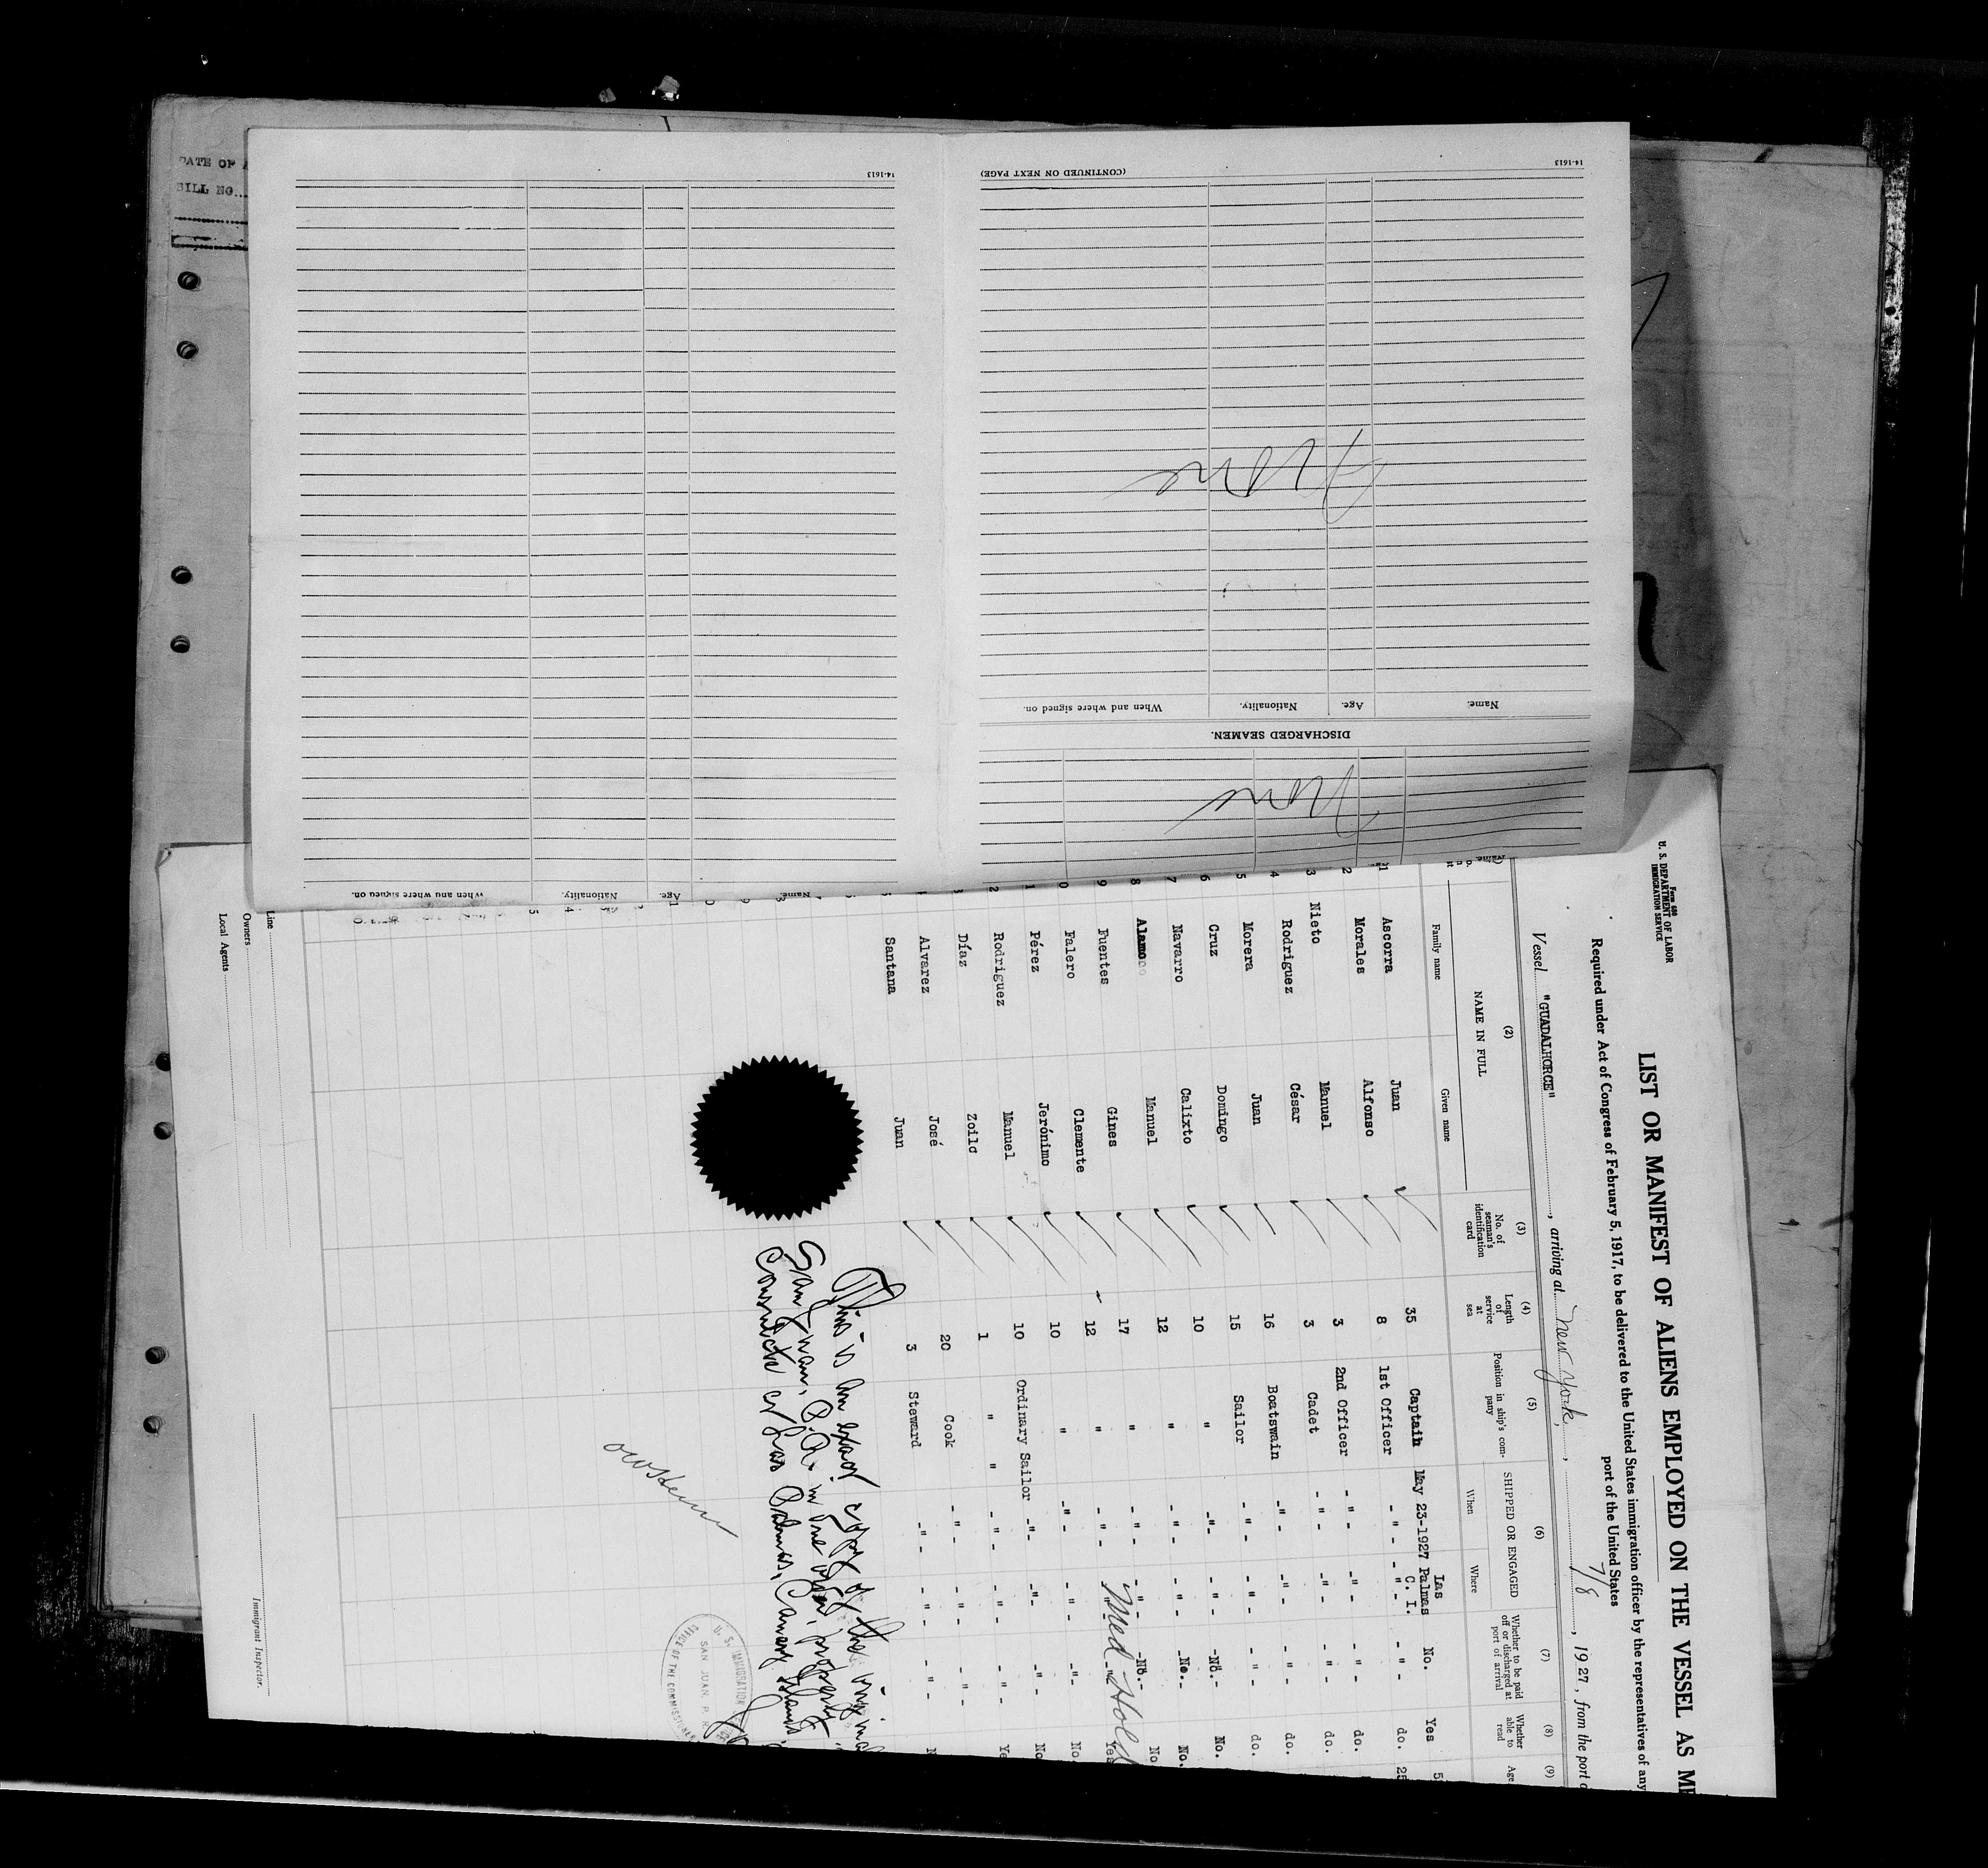 DATE OF
BILL NO.
14-1613
When and where signed on.
Nationality.
Age.
Name.
14-1613
(CONTINUED ON NEXT PAGE)
None
Name.
Age.
Nationality.
When and where signed on.
DISCHARGED SEAMEN.
None
Form 680
U. S. DEPARTMENT OF LABOR
IMMIGRATION SERVICE
LIST OR MANIFEST OF ALIENS EMPLOYED ON THE VESSEL AS ME
Required under Act of Congress of February 5, 1917, to be delivered to the United States immigration officer by the representatives of any
port of the United States
Vessel "GUADALHORCE", arriving at New York, 7/8, 1927, from the port o
(2) (3) (4) (5) (6) (7) (8) (9)
NAME IN FULL No. of seaman's identification card Length of service at sea Position in ship's company SHIPPED OR ENGAGED Whether to be paid off or discharged at port of arrival Whether able to read Age
Family name Given name When Where
1 Ascorra Juan 35 Captain May 23-1927 Las Palmas C. I. No. Yes 5
2 Morales Alfonso 8 1st Officer -"- -"- -"- do. 25
3 Nieto Manuel 3 2nd Officer -"- -"- -"- do.
4 Rodriguez César 3 Cadet -"- -"- -"- do.
5 Morera Juan 16 Boatswain -"- -"- -"- do.
6 Cruz Domingo 15 Sailor -"- -"- -"- do.
7 Navarro Calixto 10 " -"- -"- -No.- No.
8 Alamo Manuel 12 " -"- -"- -No.- No.
9 Fuentes Gines 17 " -"- -"- -No.- No
0 Falero Clemente 12 " -"- -"- -"- Yes
Med Hold
1 Pérez Jerónimo 10 " -"- -"- -"- No.
2 Rodriguez Manuel 10 Ordinary Sailor -"- -"- -"- No
3 Díaz Zoilo 1 " " -"- -"- -"- Ye
4 Alvarez José 20 Cook -"- -"- -"-
5 Santana Juan 3 Steward -"- -"- -"- N
This is an exact copy of the
San Juan, P.R. in one
Consulate at Las Palmas, Canary Islands,
U. S. IMMIGRATION
SAN JUAN, P. R.
OFFICE OF THE COMMISSIONER
Line
Owners
Local Agents
Immigrant Inspector.